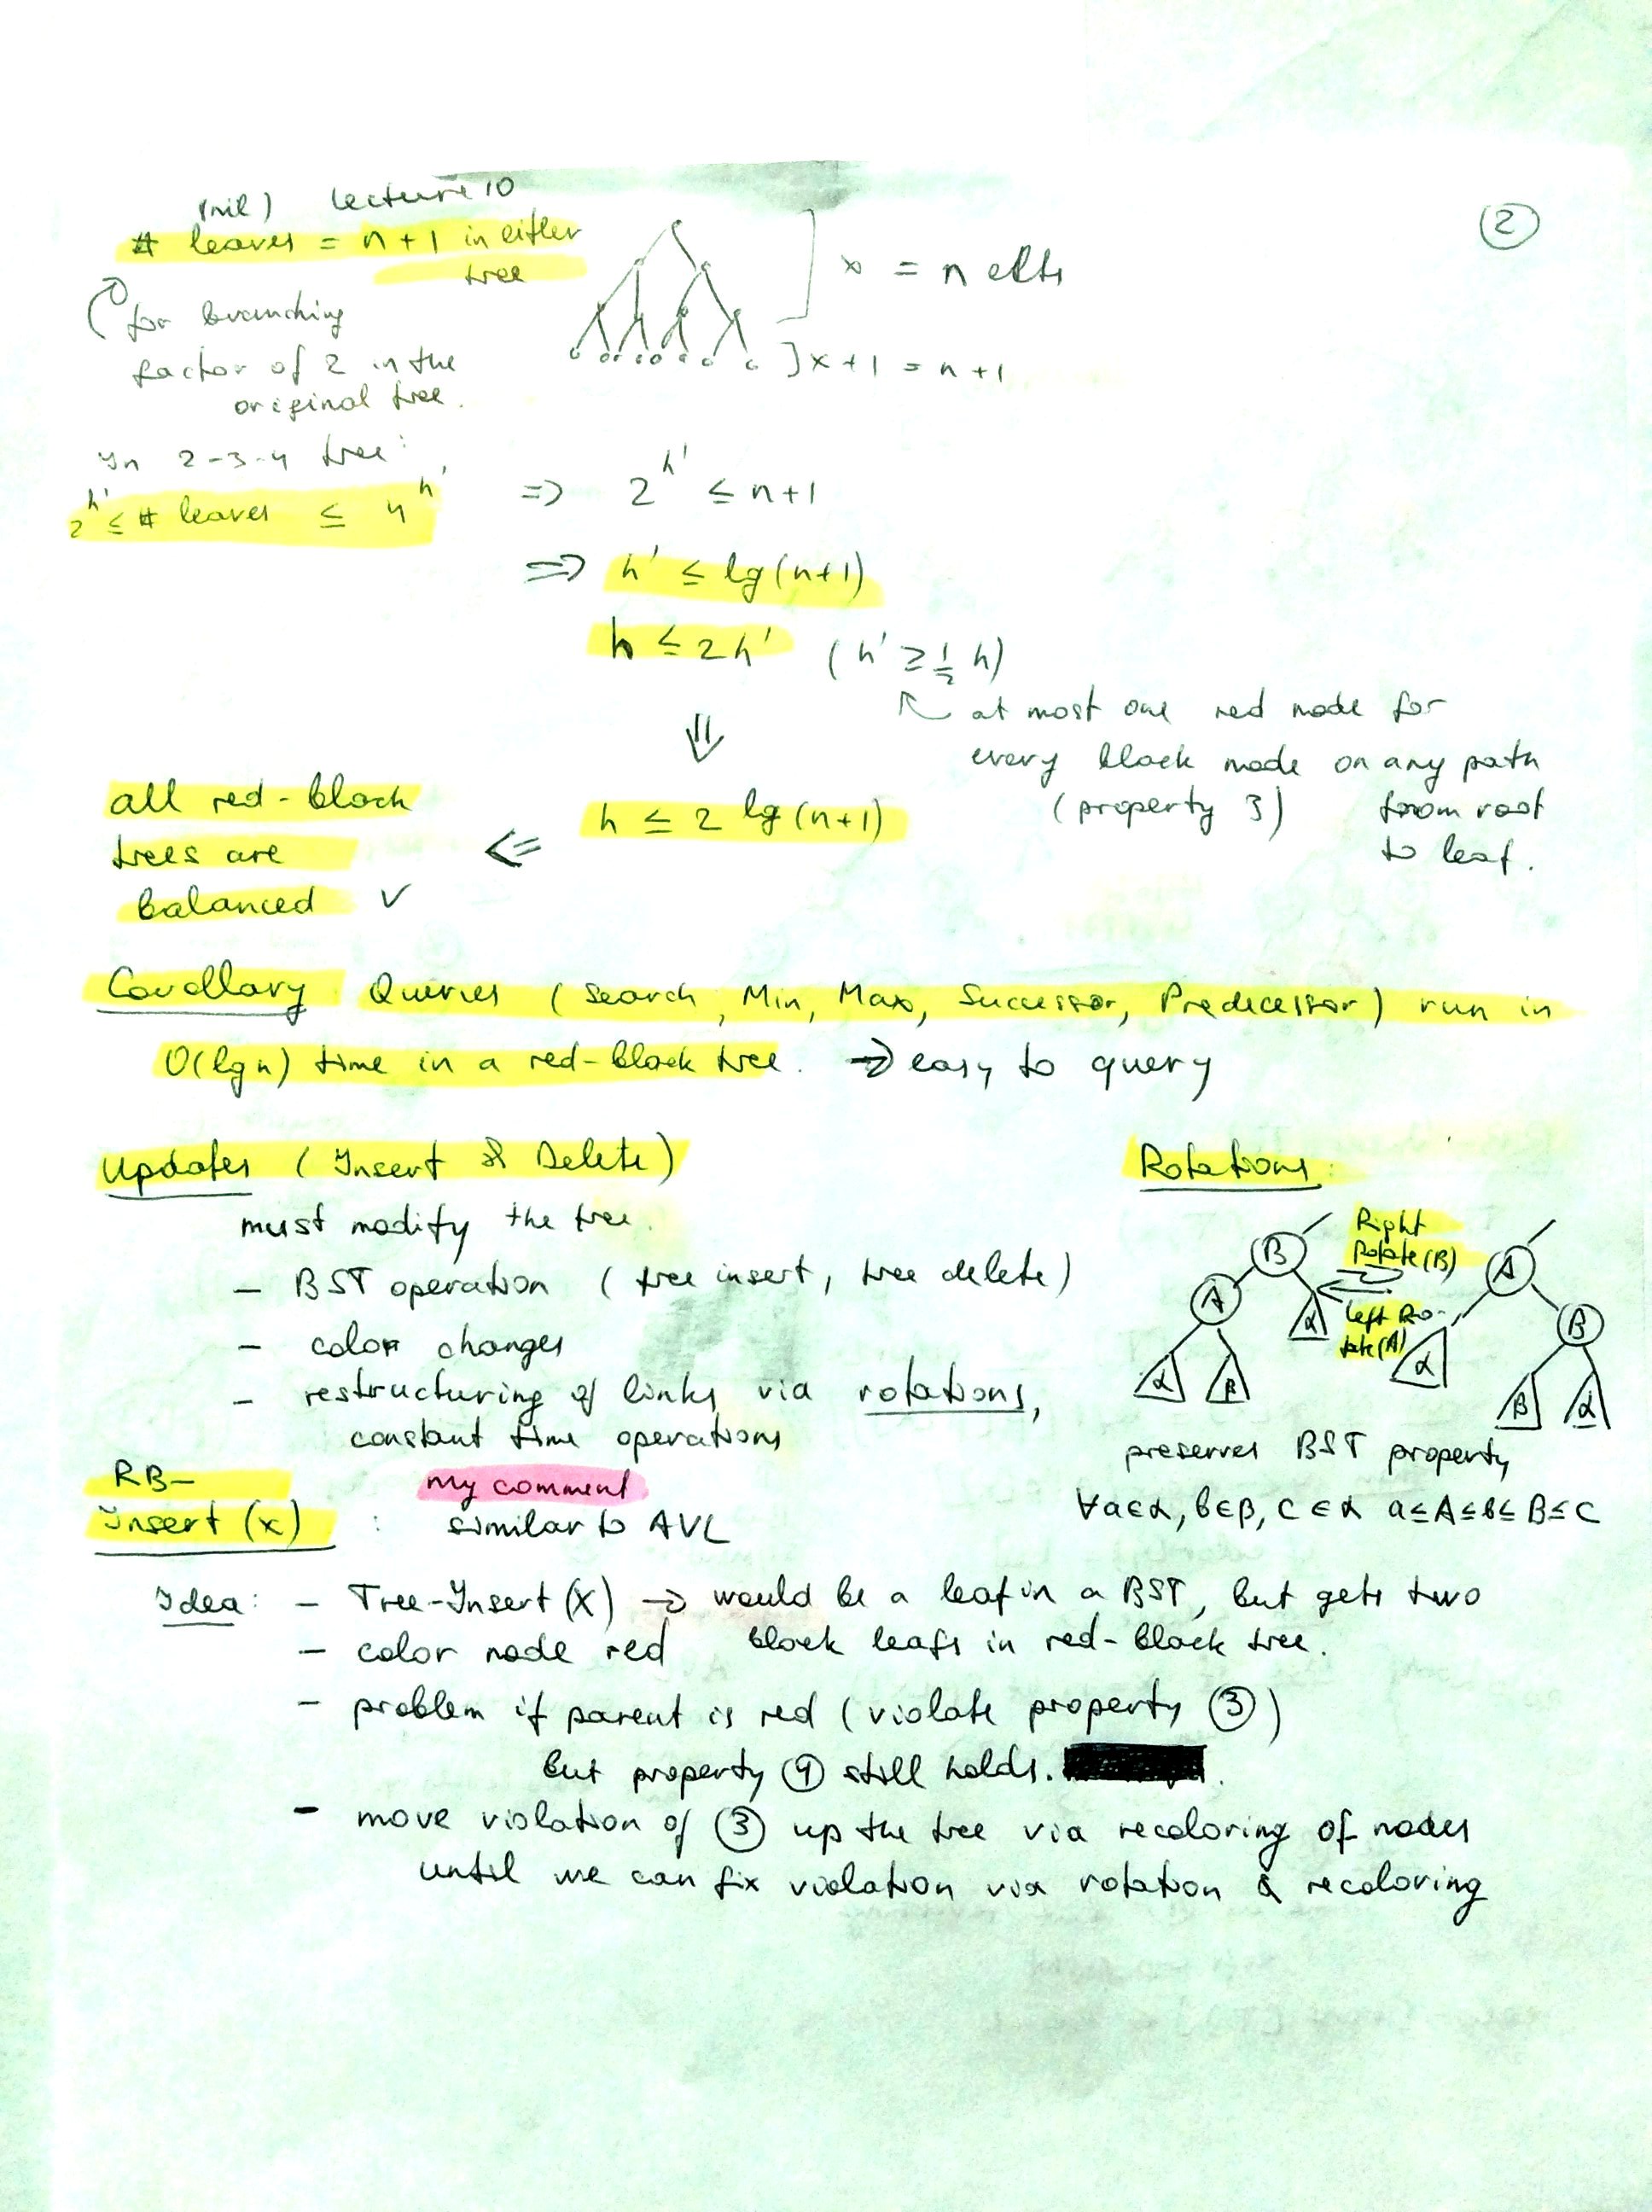 (nil) Lecture 10
②
# leaves = n+1 in either
tree
x = n elts
for branching
factor of 2 in the
original tree.
] x+1 = n+1
In 2-3-4 tree:
2^h' ≤ # leaves ≤ 4^h'
=> 2^h' ≤ n+1
=> h' ≤ lg(n+1)
h ≤ 2h' (h' ≥ 1/2 h)
at most one red node for
every black node on any path
(property 3) from root
to leaf.
⇓
h ≤ 2 lg(n+1)
<=
all red-black
trees are
balanced ✓
Corollary Queries (Search, Min, Max, Successor, Predecessor) run in
O(lg n) time in a red-black tree. → easy to query
Updates (Insert & Delete)
must modify the tree.
- BST operation (tree insert, tree delete)
- color changes
- restructuring of links via rotations,
constant time operations
Rotations:
B
A
α
β
α
Right
Rotate(B)
Left Ro-
tate(A)
A
B
α
β
α
preserves BST property
∀a∈α, b∈β, c∈α a≤A≤b≤B≤C
RB-
Insert (x) :
my comment
similar to AVL
Idea: - Tree-Insert(x) → would be a leaf in a BST, but gets two
black leafs in red-black tree.
- color node red
- problem if parent is red (violate property ③)
but property ④ still holds.
- move violation of ③ up the tree via recoloring of nodes
until we can fix violation via rotation & recoloring